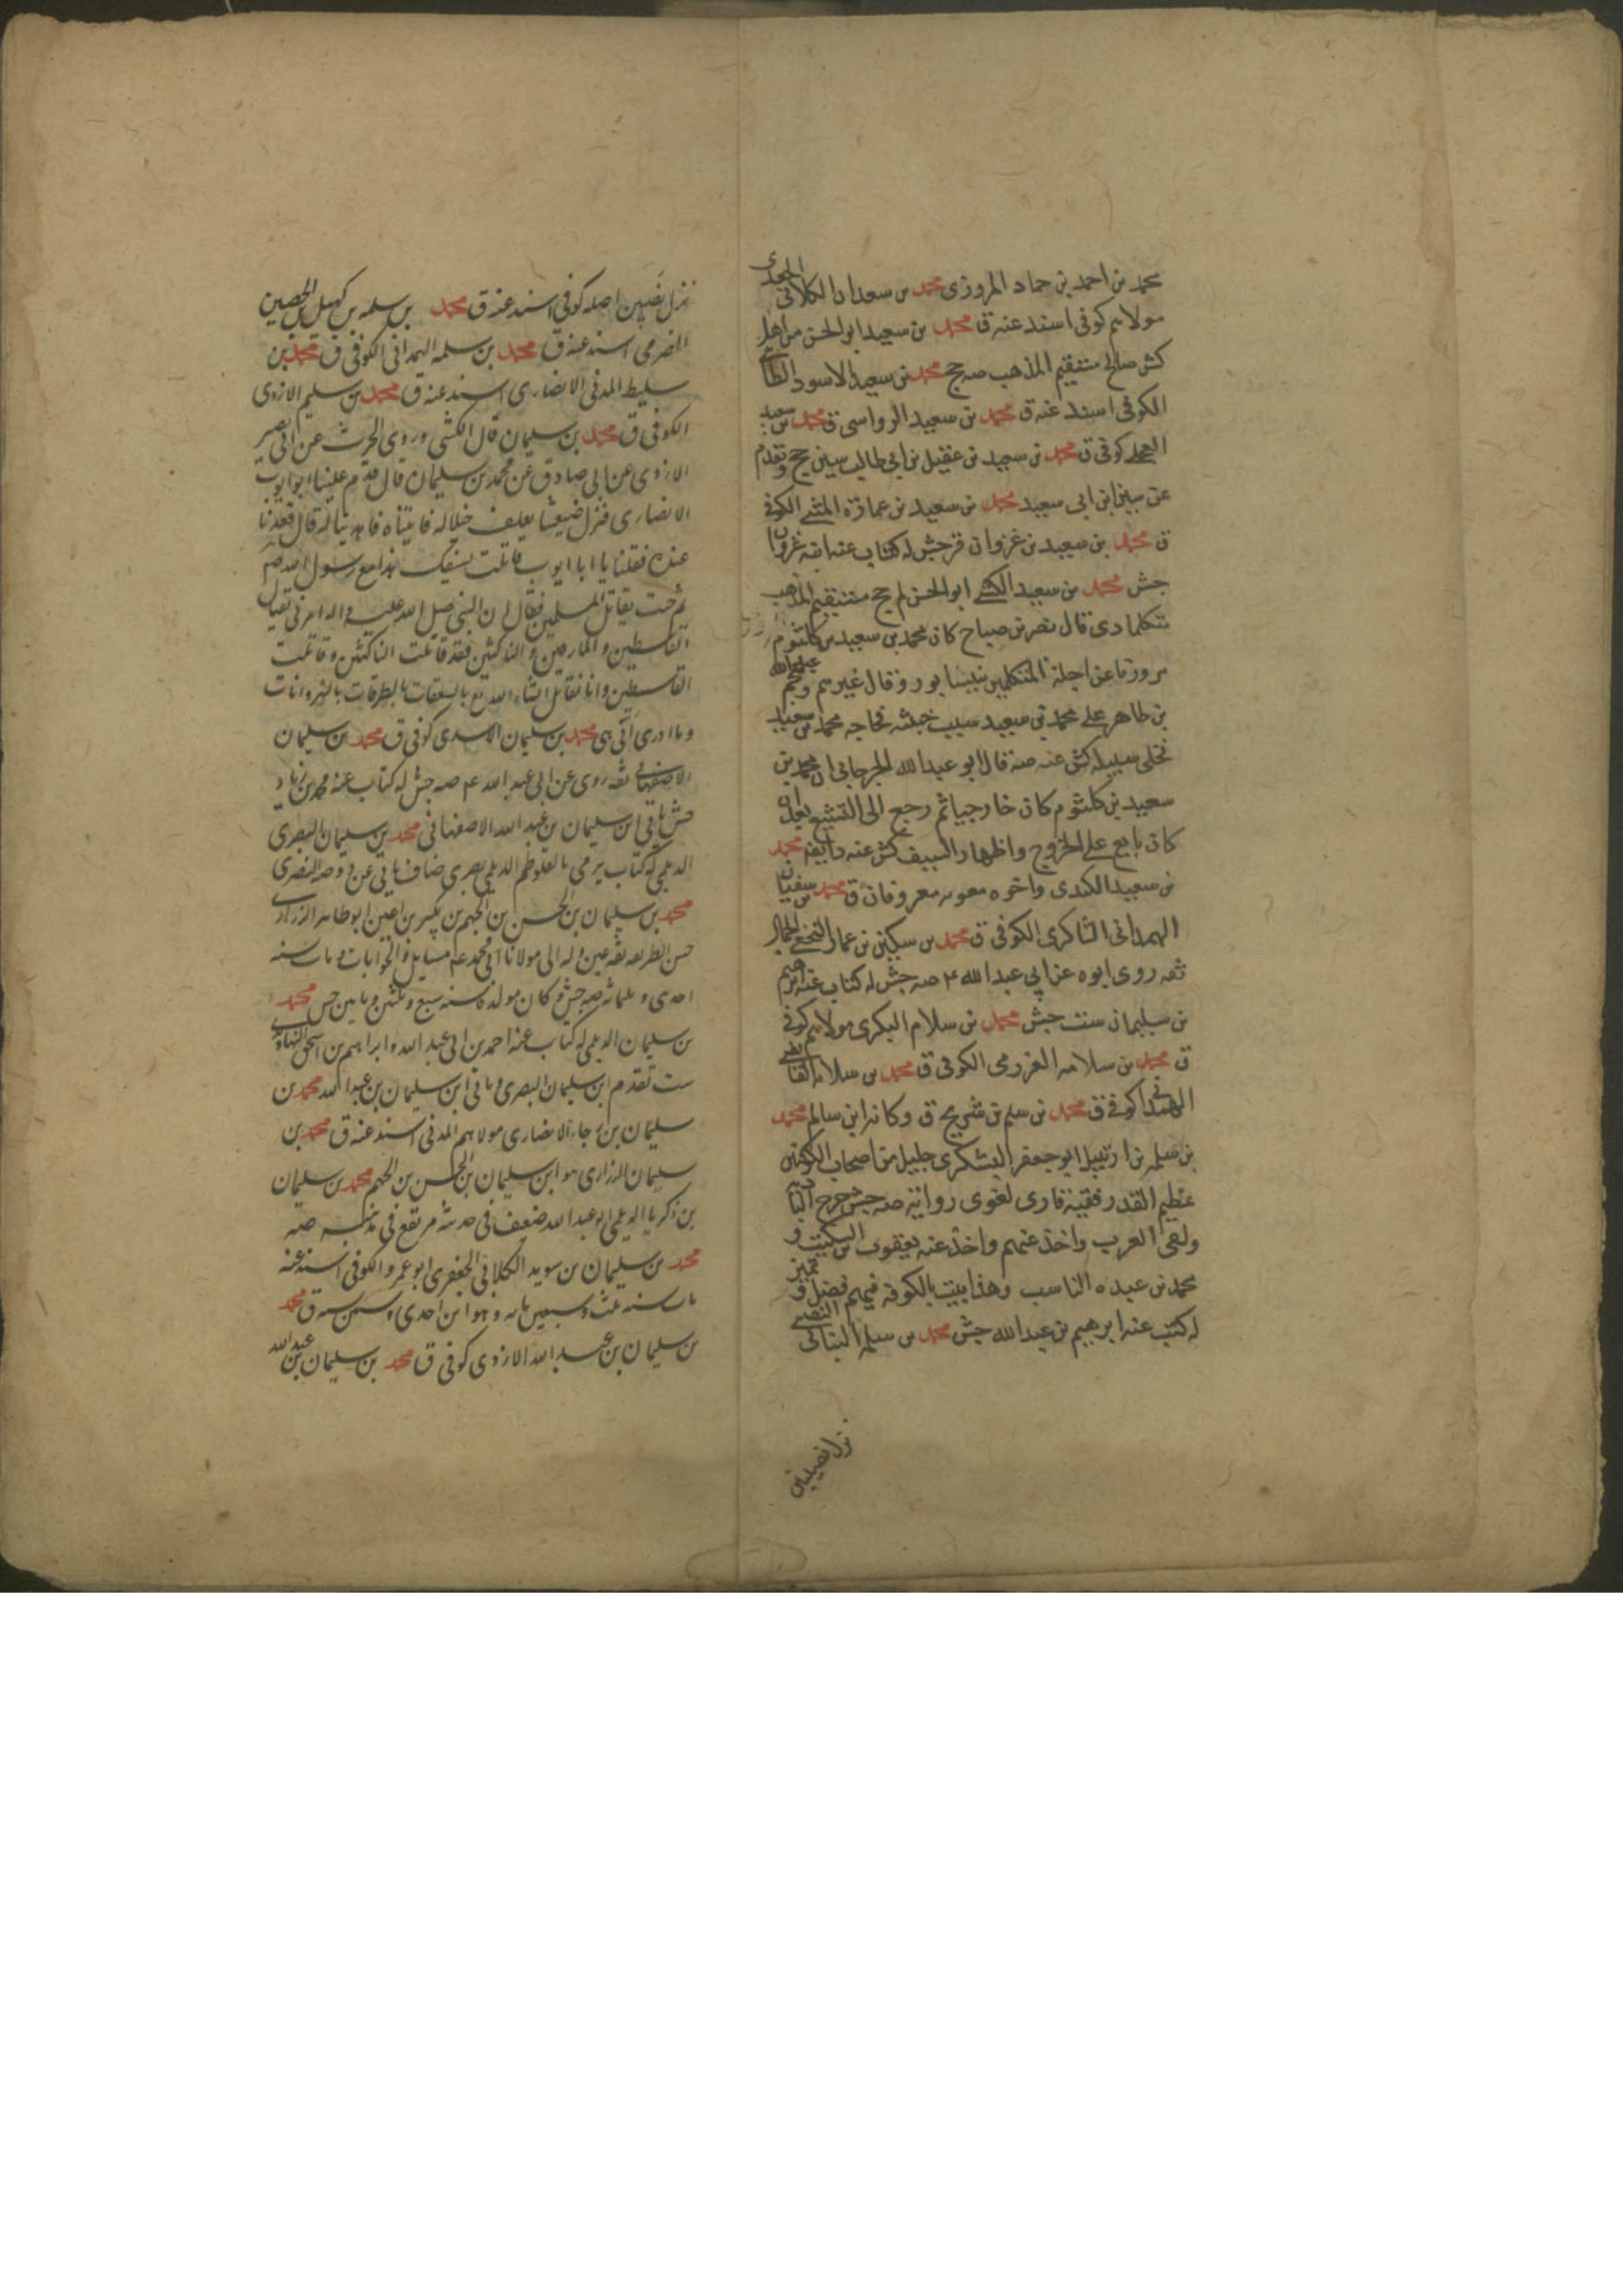 محمد بن احمد بن حماد المروزى محمد بن سعدان الكلابى الجعدى
مولاهم كوفى اسند عنه ق محمد بن سعيد ابو الحسن من اهل
كش صالح مستقيم المذهب صه جح محمد بن سعيد بن الاسود الطائى
الكوفى اسند عنه ق محمد بن سعيد الرواسى ق محمد بن سعيد
العجلى كوفى ق محمد بن سعيد بن عقيل بن ابى طالب سين جح وتقدم
عن سين ابن ابى سعيد محمد بن سعيد بن عمارة المثنى الكوفى
ق محمد بن سعيد بن غزوان قر جش له كتاب عنه ابنه غزوان
جش محمد بن سعيد الكشى ابو الحسن لم جح مستقيم المذهب
قال نصر بن صباح كان محمد بن سعيد بن كلثوم
مروزيا من اجلة المتكلمين بنيسابور وقال غيرهم وهجم عبد الله
بن طاهر على محمد بن سعيد سبب خبثه فحاجه محمد بن سعيد
فخلى سبيله كش عنه صه قال ابو عبد الله الجرجانى ان محمد بن
سعيد بن كلثوم كان خارجيا ثم رجع الى التشيع بعد ان
كان بايع على الخروج واظهار السيف كش عنه محمد
بن سعيد الكندى واخوه معروفان ق محمد بن سفيان
الهمدانى الشاكرى الكوفى ق محمد بن سكين بن عمار النخعى الجمال
ثقه روى ابوه عن ابى عبد الله ع صه جش له كتاب عنه ابرهيم
بن سليمان ست جش محمد بن سلام البكرى مولاهم كوفى
ق محمد بن سلامه العزرمى الكوفى ق محمد بن سلامه
الهمدانى كوفى ق محمد بن سلم بن شريح ق وكانه ابن سالم محمد
بن سلمه بن ارتبيل ابو جعفر اليشكرى جليل من اصحاب الكوفيين
عظيم القدر فقيه قارى لغوى راوية صه جش خرج الى البادية
ولقى العرب واخذ عنهم واخذ عنه يعقوب بن السكيت و
محمد بن عبده الناسب وهذا بيت بالكوفة فيهم فضل و تميز
له كتب عنه ابرهيم بن عبد الله جش محمد بن سلمه البنانى النصيبى
نزل نصيبين
نزل نصيبين اصله كوفى اسند عنه ق محمد بن سلمه بن كهيل بن الحصين
الحضرمى اسند عنه ق محمد بن سلمه الهمدانى الكوفى ق محمد بن
سليط المدنى الانصارى اسند عنه ق محمد بن سليم الازدى
الكوفى ق محمد بن سليمان قال الكشى وروى الحرث عن ابى بصير
الازدى عن ابى صادق عن محمد بن سليمان قال قدم علينا ابو ايوب
الانصارى فنزل ضيعتنا يعلف خيلا له فاتيناه فاهدينا له قال فقعدنا
عنده فقلنا يا ابا ايوب قاتلت بسيفك هذا مع رسول الله ص
ثم جئت تقاتل المسلمين فقال ان النبى صلى الله عليه واله امرنى بقتال
القاسطين والمارقين والناكثين فقد قاتلت الناكثين وقاتلت
القاسطين وانا نقاتل انشاء الله تع بالسعفات بالطرقات بالنهروانات
وما ادرى انى هى محمد بن سليمان الاسدى كوفى ق محمد بن سليمان
الاصفهانى ثقه روى عن ابى عبد الله ع صه جش له كتاب عنه محمد بن زياد
جش ياتى ابن سليمان بن عبد الله الاصفهانى محمد بن سليمان البصرى
الديلمى له كتاب يرمى بالغلو ظم الديلمى بصرى ضا
محمد بن سليمان بن الحسن بن الجهم بن بكير بن اعين ابو طاهر الزرارى
حسن الطريقه ثقه عين وله الى مولانا ابى محمد ع مسايل والجوابات ومات سنه
احدى وثلثمائه صه جش وكان مولده سنه سبع وثلثين ومايتين جش محمد
بن سليمان الديلمى له كتاب عنه احمد بن ابى عبد الله وابراهيم بن اسحق النهاوندى
ست تقدم ابن سليمان البصرى وياتى ابن سليمان بن عبد الله محمد بن
سليمان بن رجاء الانصارى مولاهم المدنى اسند عنه ق محمد بن
سليمان الزرارى هو ابن سليمان بن الحسن بن الجهم محمد بن سليمان
بن زكريا الديلمى ابو عبد الله ضعيف فى حديثه مرتفع فى مذهبه صه
محمد بن سليمان بن سويد الكلابى الجعفرى ابو عمرو الكوفى اسند عنه
مات سنه ثلث وسبعين مائه وهو ابن احدى وسبعين سنه ق محمد
بن سليمان بن عبد الله الازدى كوفى ق محمد بن سليمان بن عبد الله